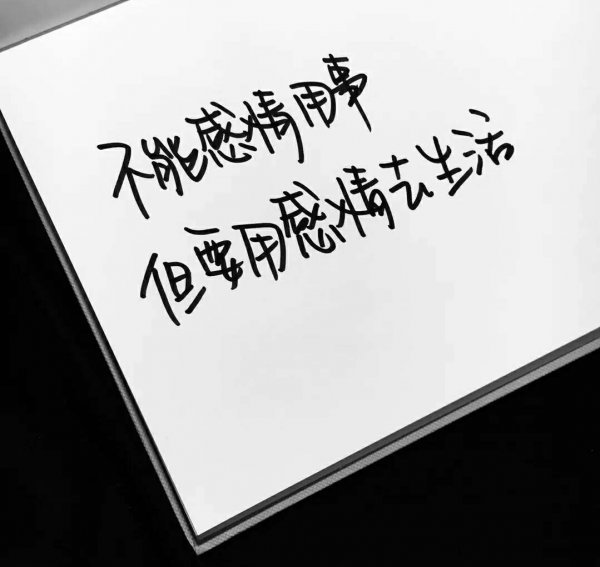 不能感情用事
但要用感情去生活